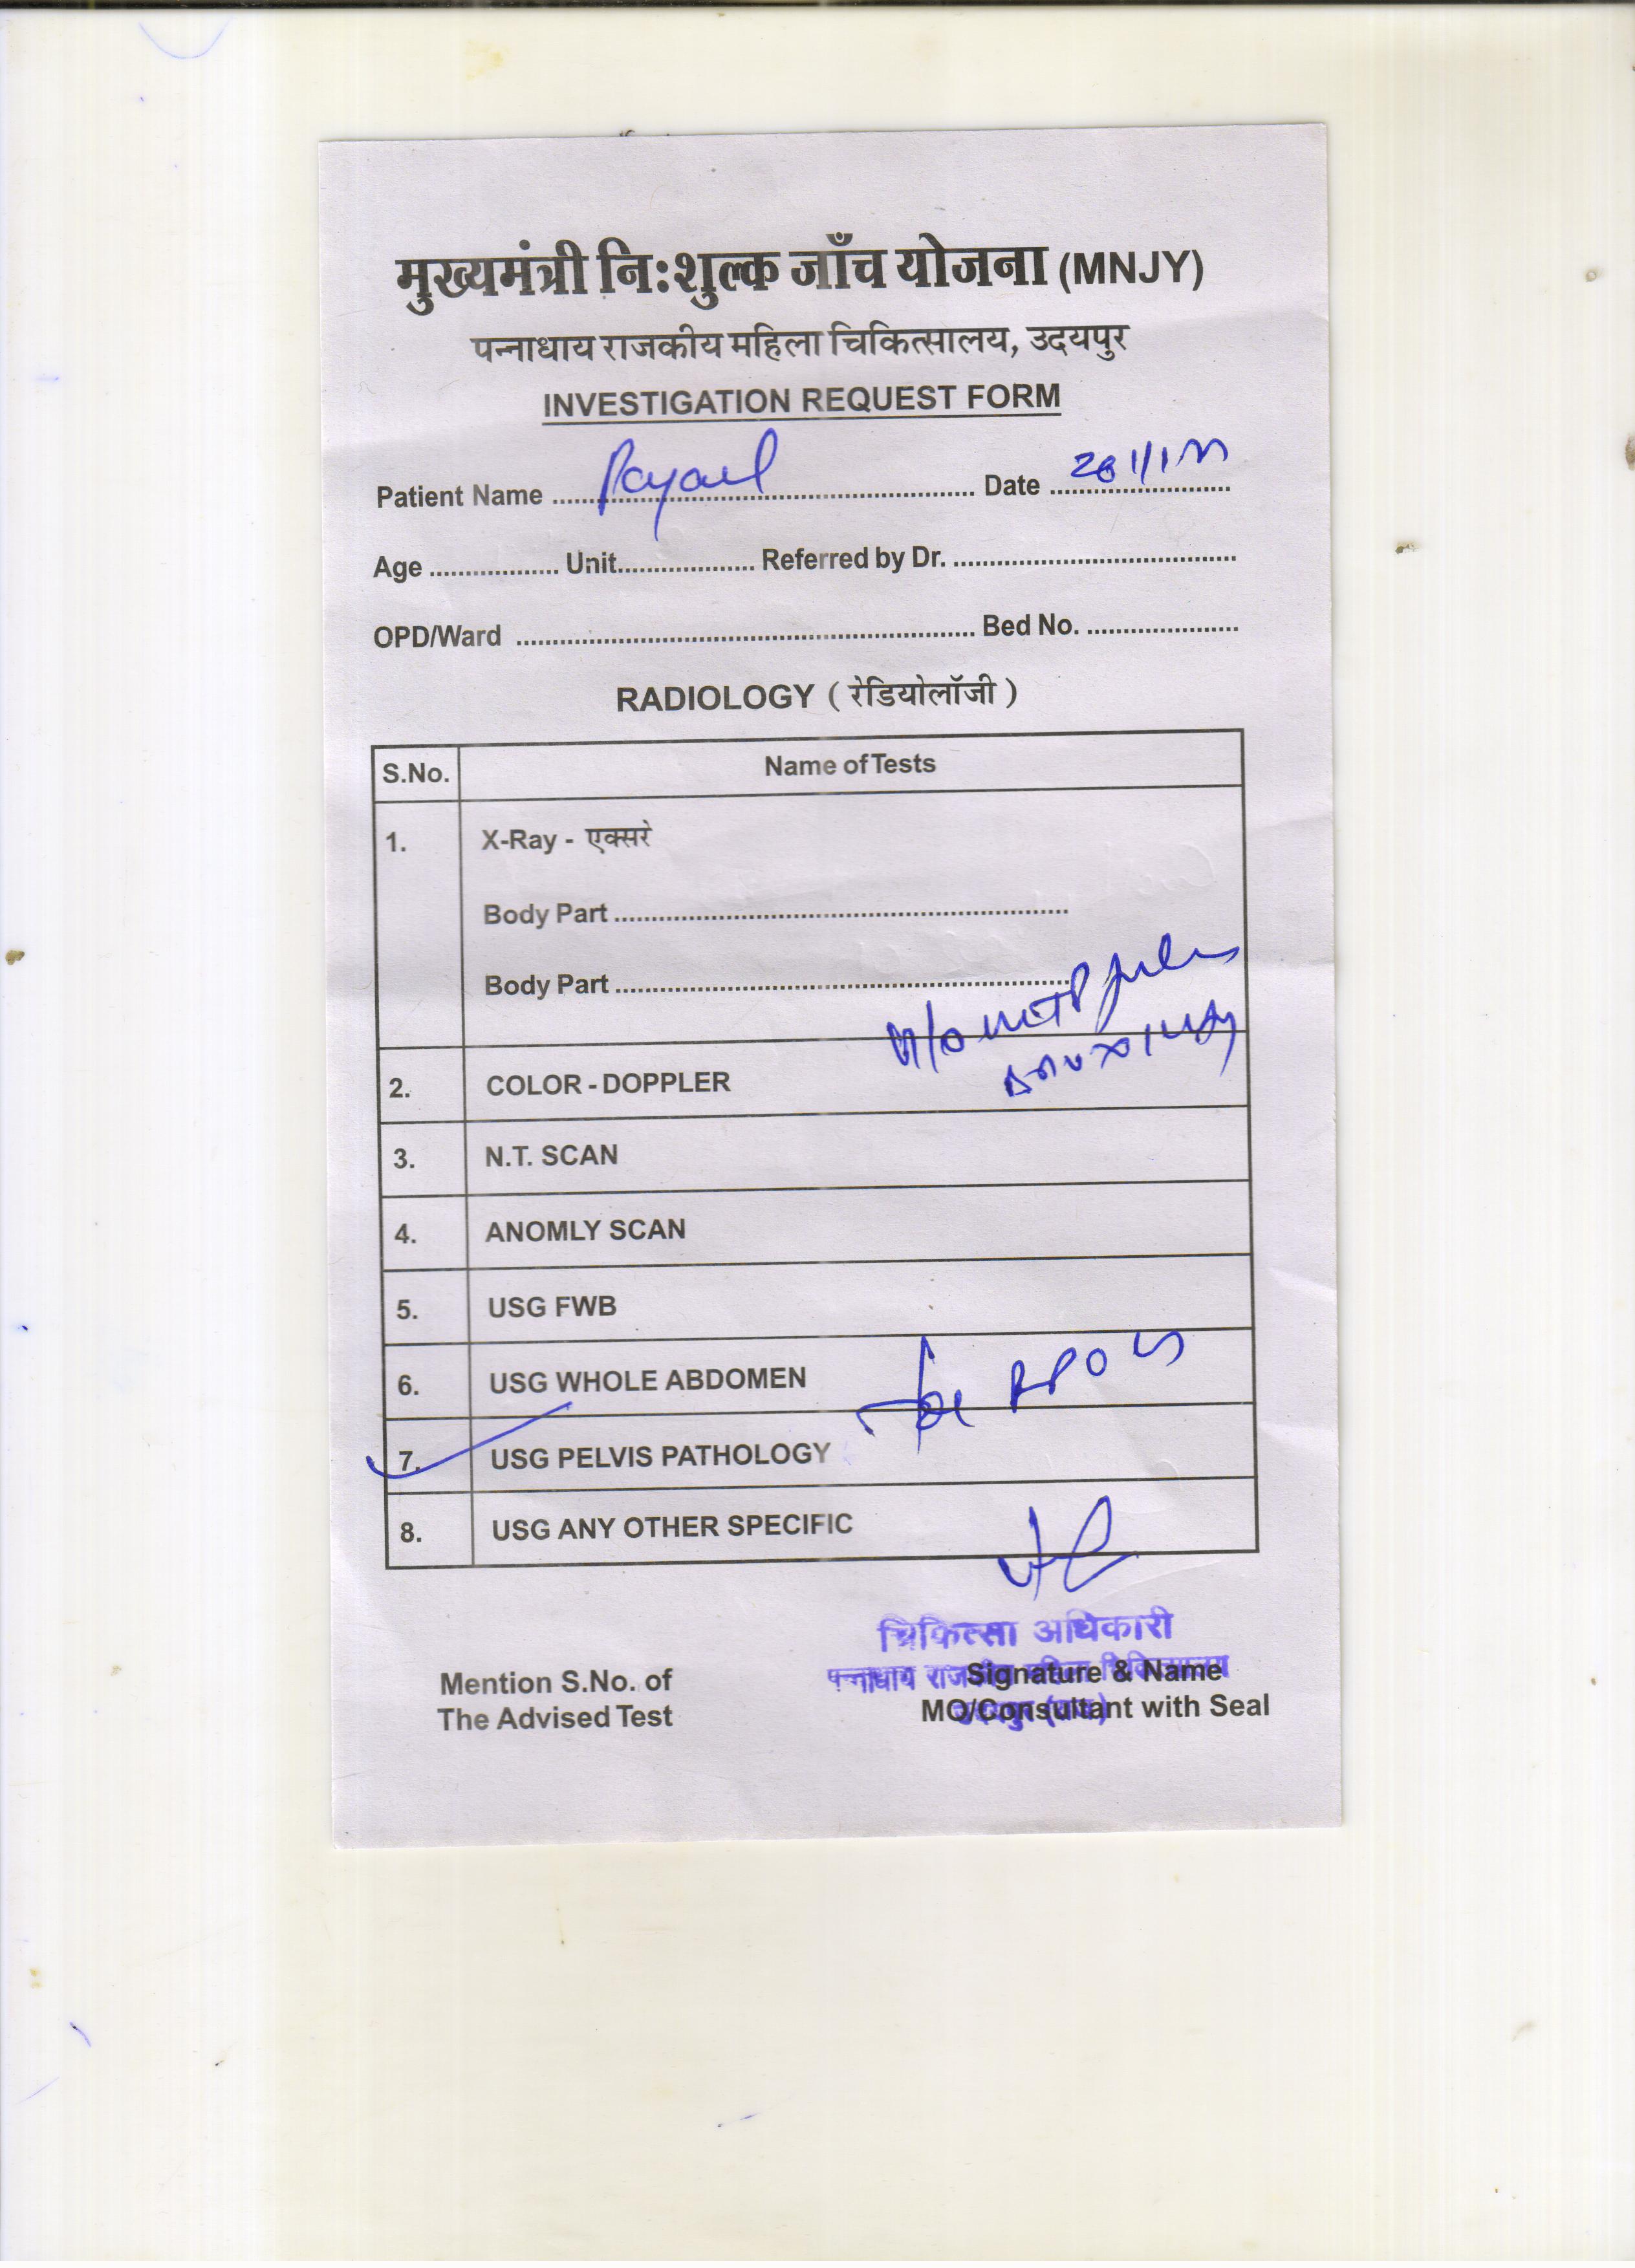 मुख्यमंत्री निःशुल्क जाँच योजना (MNJY)
पन्नाधाय राजकीय महिला चिकित्सालय, उदयपुर
INVESTIGATION REQUEST FORM
Patient Name ........ Date ........
Age ........ Unit........ Referred by Dr. ........
OPD/Ward ........ Bed No. ........
RADIOLOGY ( रेडियोलॉजी )
S.No. Name of Tests
1. X-Ray - एक्सरे
Body Part ........
Body Part ........
2. COLOR - DOPPLER
3. N.T. SCAN
4. ANOMLY SCAN
5. USG FWB
6. USG WHOLE ABDOMEN
7. USG PELVIS PATHOLOGY
8. USG ANY OTHER SPECIFIC
चिकित्सा अधिकारी
पन्नाधाय
Mention S.No. of Signature & Name
The Advised Test MO/Consultant with Seal